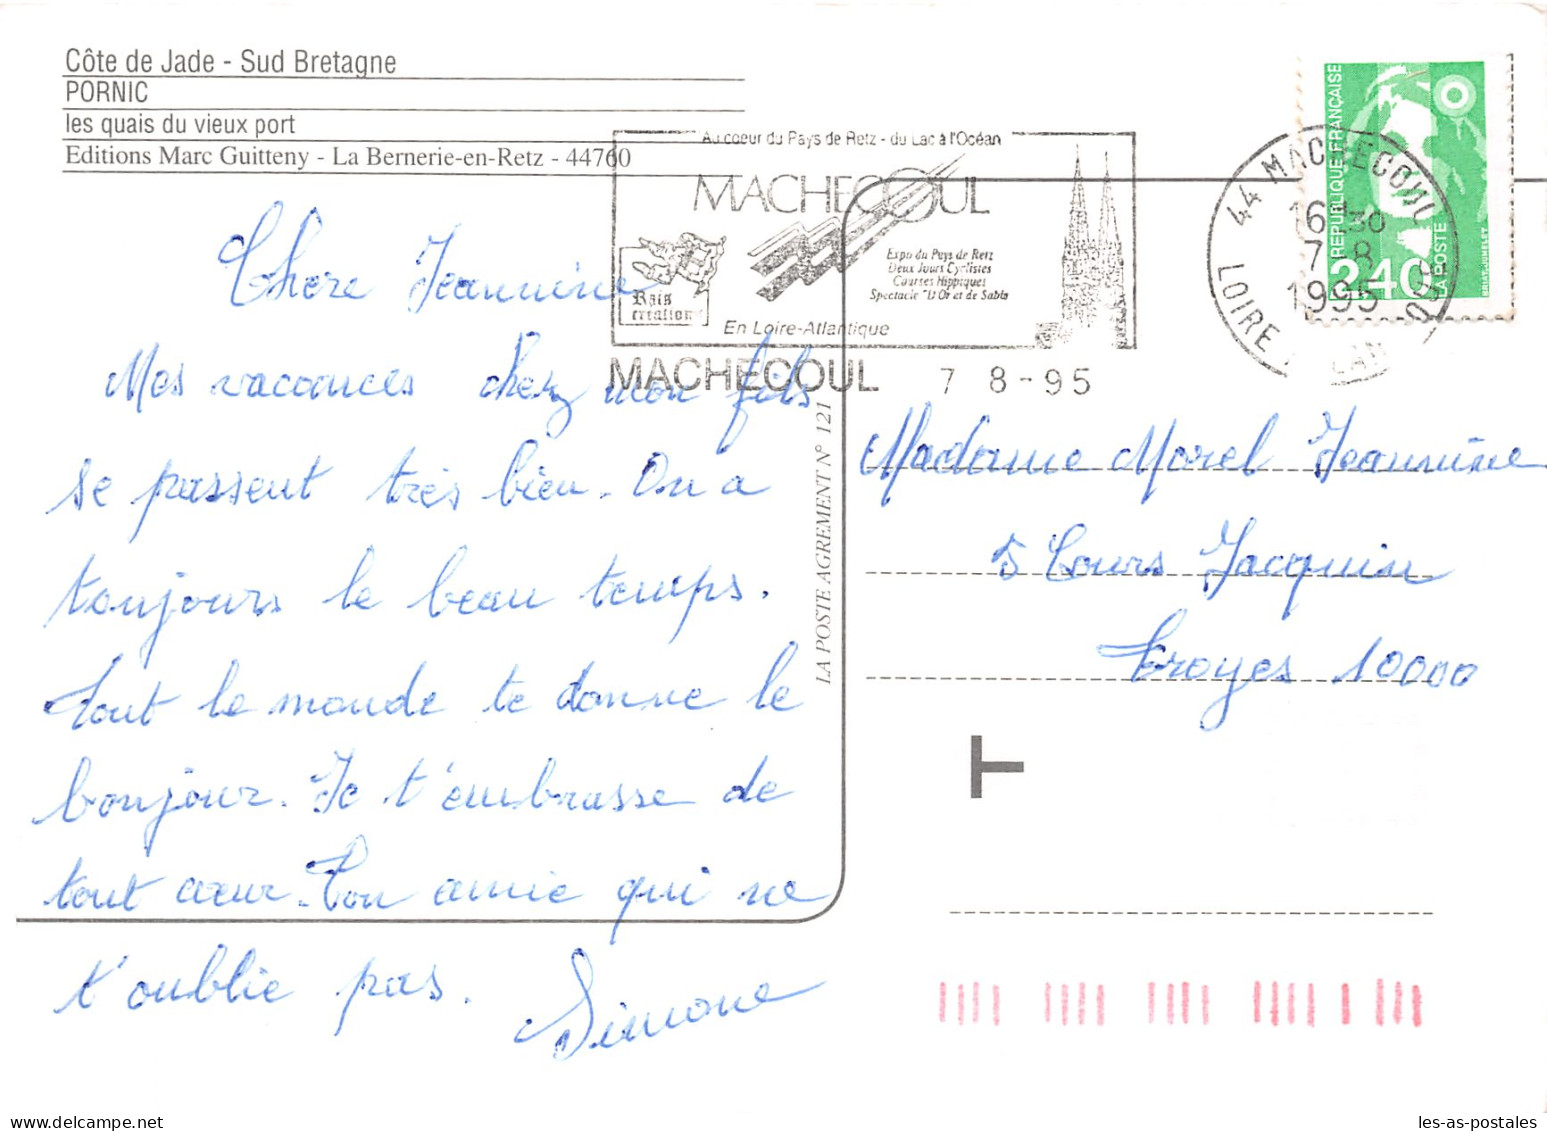 Côte de Jade - Sud Bretagne
PORNIC
les quais du vieux port
Editions Marc Guitteny - La Bernerie-en-Retz - 44760
Au coeur du Pays de Retz - du Lac à l'Océan
MACHECOUL
Expo du Pays de Retz
Deux Jours Cyclistes
Courses Hippiques
Spectacle "D'Or et de Sable
Rais
création
En Loire-Atlantique
MACHECOUL 7 8-95
44 MACHECOUL
16H30
7-8
1995
LOIRE
REPUBLIQUE FRANÇAISE
2,40
LA POSTE
BRIAT-JUMELET
Chère Jeannine
Mes vacances chez mon fils
se passent très bien. On a
toujours le beau temps.
Tout le monde te donne le
bonjour. Je t'embrasse de
tout cœur. Ton amie qui ne
t'oublie pas. Simone
LA POSTE AGREMENT N° 121
Madame Morel Jeannine
5 Cours Jacquin
Troyes 10000
T
les-as-postales